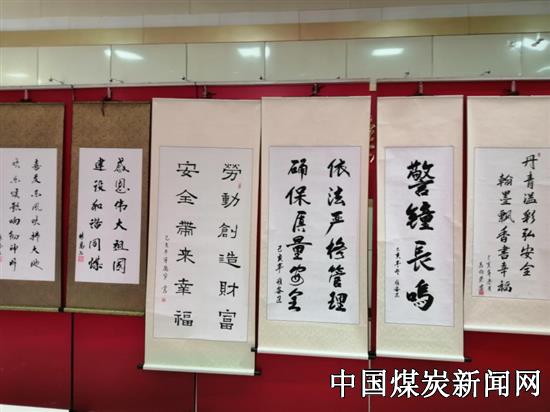 感恩伟大祖国
建设和谐同煤
勞動創造財富
安全帶來幸福
己亥
依法严格管理
确保质量安全
己亥年
警鐘長鳴
己亥年
丹青溢彩弘安全
翰墨飘香书幸福
中国煤炭新闻网